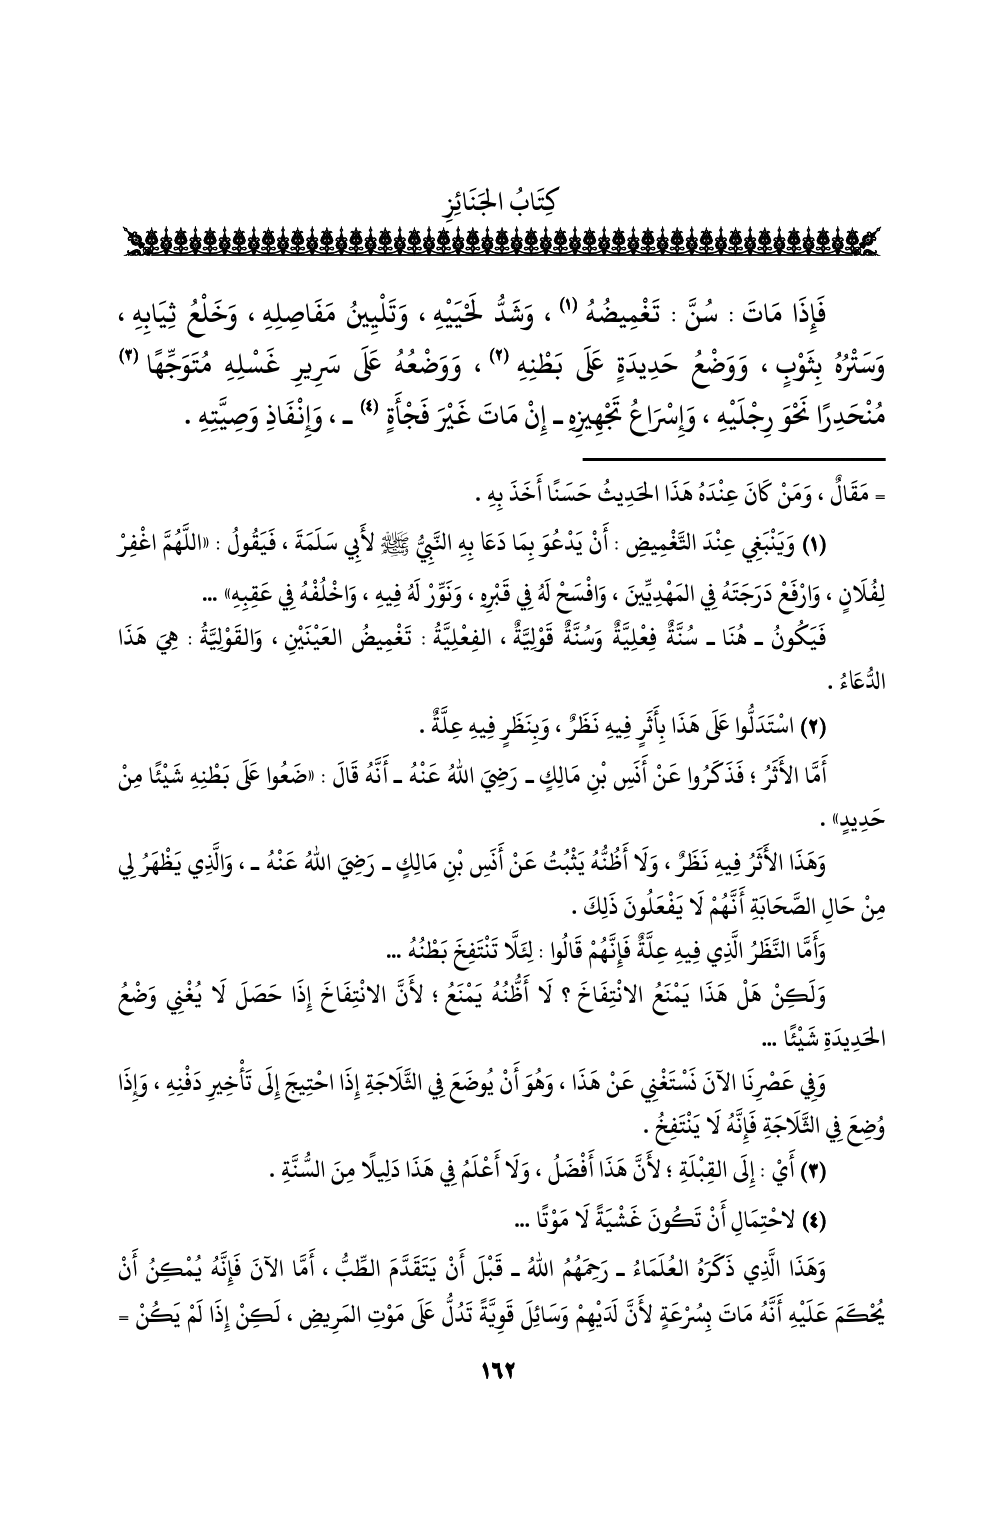 كِتَابُ الجَنَائِزِ
فَإِذَا مَاتَ : سُنَّ : تَغْمِيضُهُ (١) ، وَشَدُّ لَحْيَيْهِ ، وَتَلْيِينُ مَفَاصِلِهِ ، وَخَلْعُ ثِيَابِهِ ،
وَسَتْرُهُ بِثَوْبٍ ، وَوَضْعُ حَدِيدَةٍ عَلَى بَطْنِهِ (٢) ، وَوَضْعُهُ عَلَى سَرِيرِ غَسْلِهِ مُتَوَجِّهًا (٣)
مُنْحَدِرًا نَحْوَ رِجْلَيْهِ ، وَإِسْرَاعُ تَجْهِيزِهِ ـ إِنْ مَاتَ غَيْرَ فَجْأَةٍ (٤) ـ ، وَإِنْفَاذِ وَصِيَّتِهِ .
= مَقَالٌ ، وَمَنْ كَانَ عِنْدَهُ هَذَا الحَدِيثُ حَسَنًا أَخَذَ بِهِ .
(١) وَيَنْبَغِي عِنْدَ التَّغْمِيضِ : أَنْ يَدْعُوَ بِمَا دَعَا بِهِ النَّبِيُّ ﷺ لأَبِي سَلَمَةَ ، فَيَقُولُ : «اللَّهُمَّ اغْفِرْ
لِفُلَانٍ ، وَارْفَعْ دَرَجَتَهُ فِي المَهْدِيِّينَ ، وَافْسَحْ لَهُ فِي قَبْرِهِ ، وَنَوِّرْ لَهُ فِيهِ ، وَاخْلُفْهُ فِي عَقِبِهِ» ...
فَيَكُونُ ـ هُنَا ـ سُنَّةٌ فِعْلِيَّةٌ وَسُنَّةٌ قَوْلِيَّةٌ ، الفِعْلِيَّةُ : تَغْمِيضُ العَيْنَيْنِ ، وَالقَوْلِيَّةُ : هِيَ هَذَا
الدُّعَاءُ .
(٢) اسْتَدَلُّوا عَلَى هَذَا بِأَثَرٍ فِيهِ نَظَرٌ ، وَبِنَظَرٍ فِيهِ عِلَّةٌ .
أَمَّا الأَثَرُ ؛ فَذَكَرُوا عَنْ أَنَسِ بْنِ مَالِكٍ ـ رَضِيَ اللهُ عَنْهُ ـ أَنَّهُ قَالَ : «ضَعُوا عَلَى بَطْنِهِ شَيْئًا مِنْ
حَدِيدٍ» .
وَهَذَا الأَثَرُ فِيهِ نَظَرٌ ، وَلَا أَظُنُّهُ يَثْبُتُ عَنْ أَنَسِ بْنِ مَالِكٍ ـ رَضِيَ اللهُ عَنْهُ ـ ، وَالَّذِي يَظْهَرُ لِي
مِنْ حَالِ الصَّحَابَةِ أَنَّهُمْ لَا يَفْعَلُونَ ذَلِكَ .
وَأَمَّا النَّظَرُ الَّذِي فِيهِ عِلَّةٌ فَإِنَّهُمْ قَالُوا : لِئَلَّا تَنْتَفِخَ بَطْنُهُ ...
وَلَكِنْ هَلْ هَذَا يَمْنَعُ الانْتِفَاخَ ؟ لَا أَظُنُّهُ يَمْنَعُ ؛ لأَنَّ الانْتِفَاخَ إِذَا حَصَلَ لَا يُغْنِي وَضْعُ
الحَدِيدَةِ شَيْئًا ...
وَفِي عَصْرِنَا الآنَ نَسْتَغْنِي عَنْ هَذَا ، وَهُوَ أَنْ يُوضَعَ فِي الثَّلَاجَةِ إِذَا احْتِيجَ إِلَى تَأْخِيرِ دَفْنِهِ ، وَإِذَا
وُضِعَ فِي الثَّلَاجَةِ فَإِنَّهُ لَا يَنْتَفِخُ .
(٣) أَيْ : إِلَى القِبْلَةِ ؛ لأَنَّ هَذَا أَفْضَلُ ، وَلَا أَعْلَمُ فِي هَذَا دَلِيلًا مِنَ السُّنَّةِ .
(٤) لاحْتِمَالِ أَنْ تَكُونَ غَشْيَةً لَا مَوْتًا ...
وَهَذَا الَّذِي ذَكَرَهُ العُلَمَاءُ ـ رَحِمَهُمُ اللهُ ـ قَبْلَ أَنْ يَتَقَدَّمَ الطِّبُّ ، أَمَّا الآنَ فَإِنَّهُ يُمْكِنُ أَنْ
يُحْكَمَ عَلَيْهِ أَنَّهُ مَاتَ بِسُرْعَةٍ لأَنَّ لَدَيْهِمْ وَسَائِلَ قَوِيَّةً تَدُلُّ عَلَى مَوْتِ المَرِيضِ ، لَكِنْ إِذَا لَمْ يَكُنْ =
١٦٢